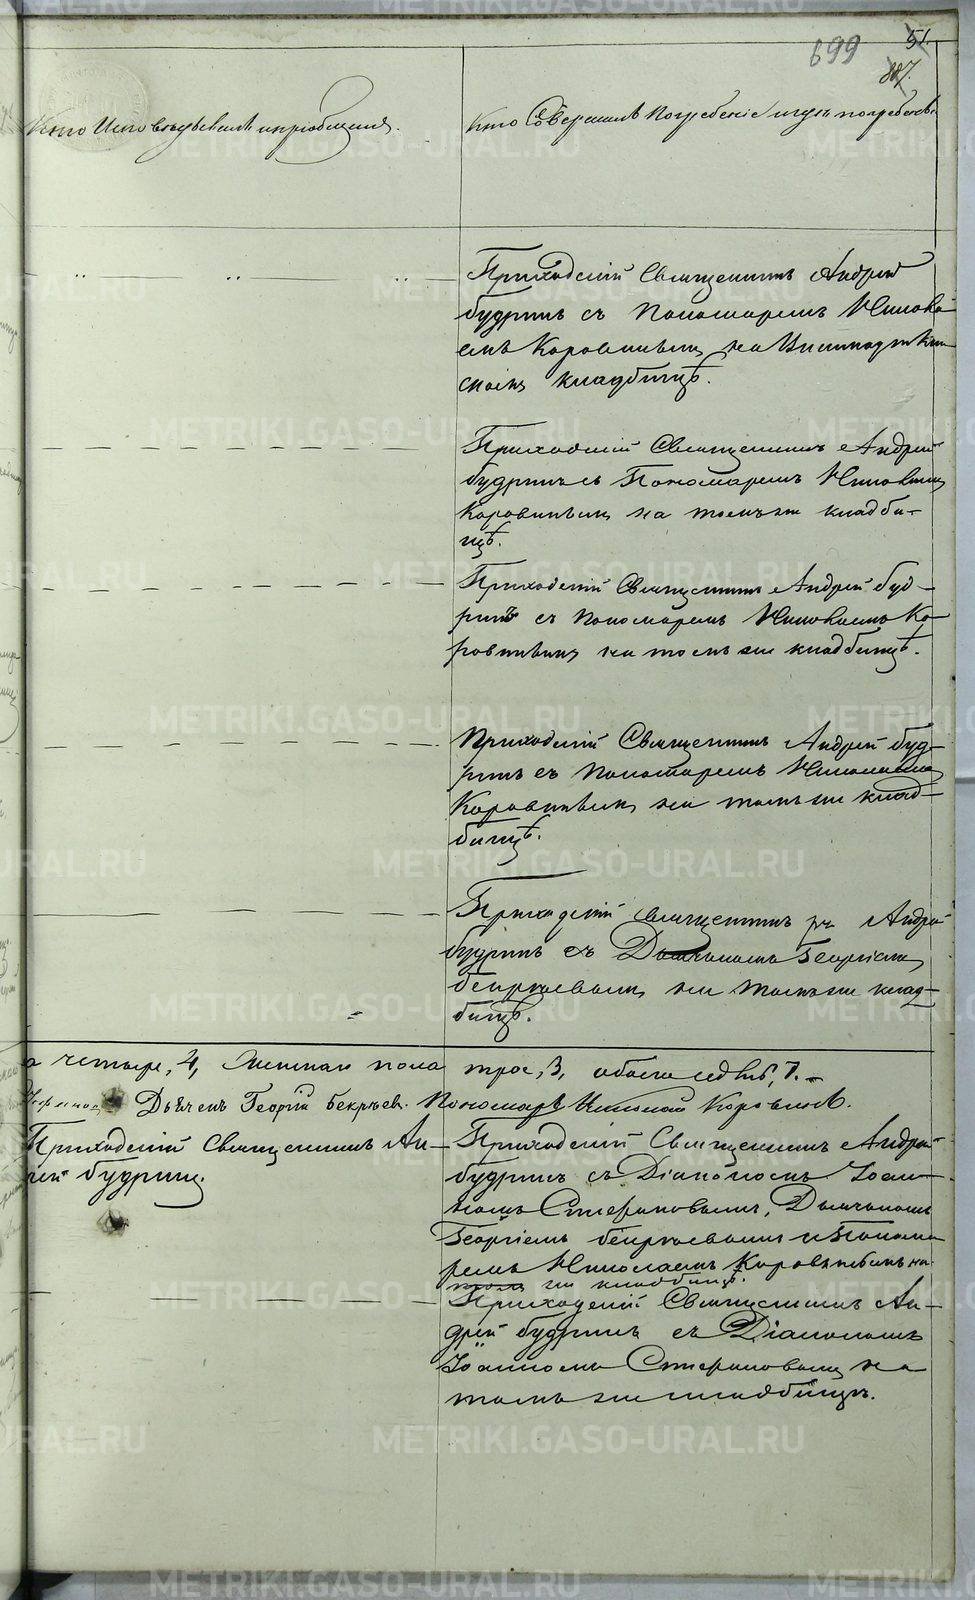 699
51.
887.
Кто Исповѣдывалъ и пріобщалъ.
Кто Совершалъ Погребеніе и гдѣ погребены.
Приходскій Священникъ Андрей
Будринъ съ Пономаремъ Никола-
емъ Коровинымъ на
скомъ кладбищѣ.
Приходскій Священникъ Андрей
Будринъ съ Пономаремъ Николаемъ
Коровинымъ на томъ же кладби-
щѣ.
Приходскій Священникъ Андрей Буд-
ринъ съ Пономаремъ Николаемъ Ко-
ровинымъ на томъ же кладбищѣ.
Приходскій Священникъ Андрей Буд-
ринъ съ Пономаремъ Николаемъ
Коровинымъ на томъ же клад-
бищѣ.
Приходскій священникъ Андрей
Будринъ съ Дьячкомъ Георгіемъ
Бекряевымъ на томъ же клад-
бищѣ.
а четыре, 4, женскаго пола трое, 3, обоего седмь, 7.
Дьячекъ Георгій Бекряев. Пономарь Николай Коровинъ.
Приходскій Священникъ Ан-
рей Будринъ.
Приходскій Священникъ Андрей
Будринъ съ Діакономъ Іоан-
номъ Стефановымъ, Дьячкомъ
Георгіемъ Бекряевымъ и Понома-
ремъ Николаемъ Коровинымъ на
томъ же кладбищѣ.
Приходскій Священникъ Ан-
дрей Будринъ съ Діакономъ
Іоанномъ Стефановымъ на
томъ же кладбищѣ.
METRIKI.GASO-URAL.RU